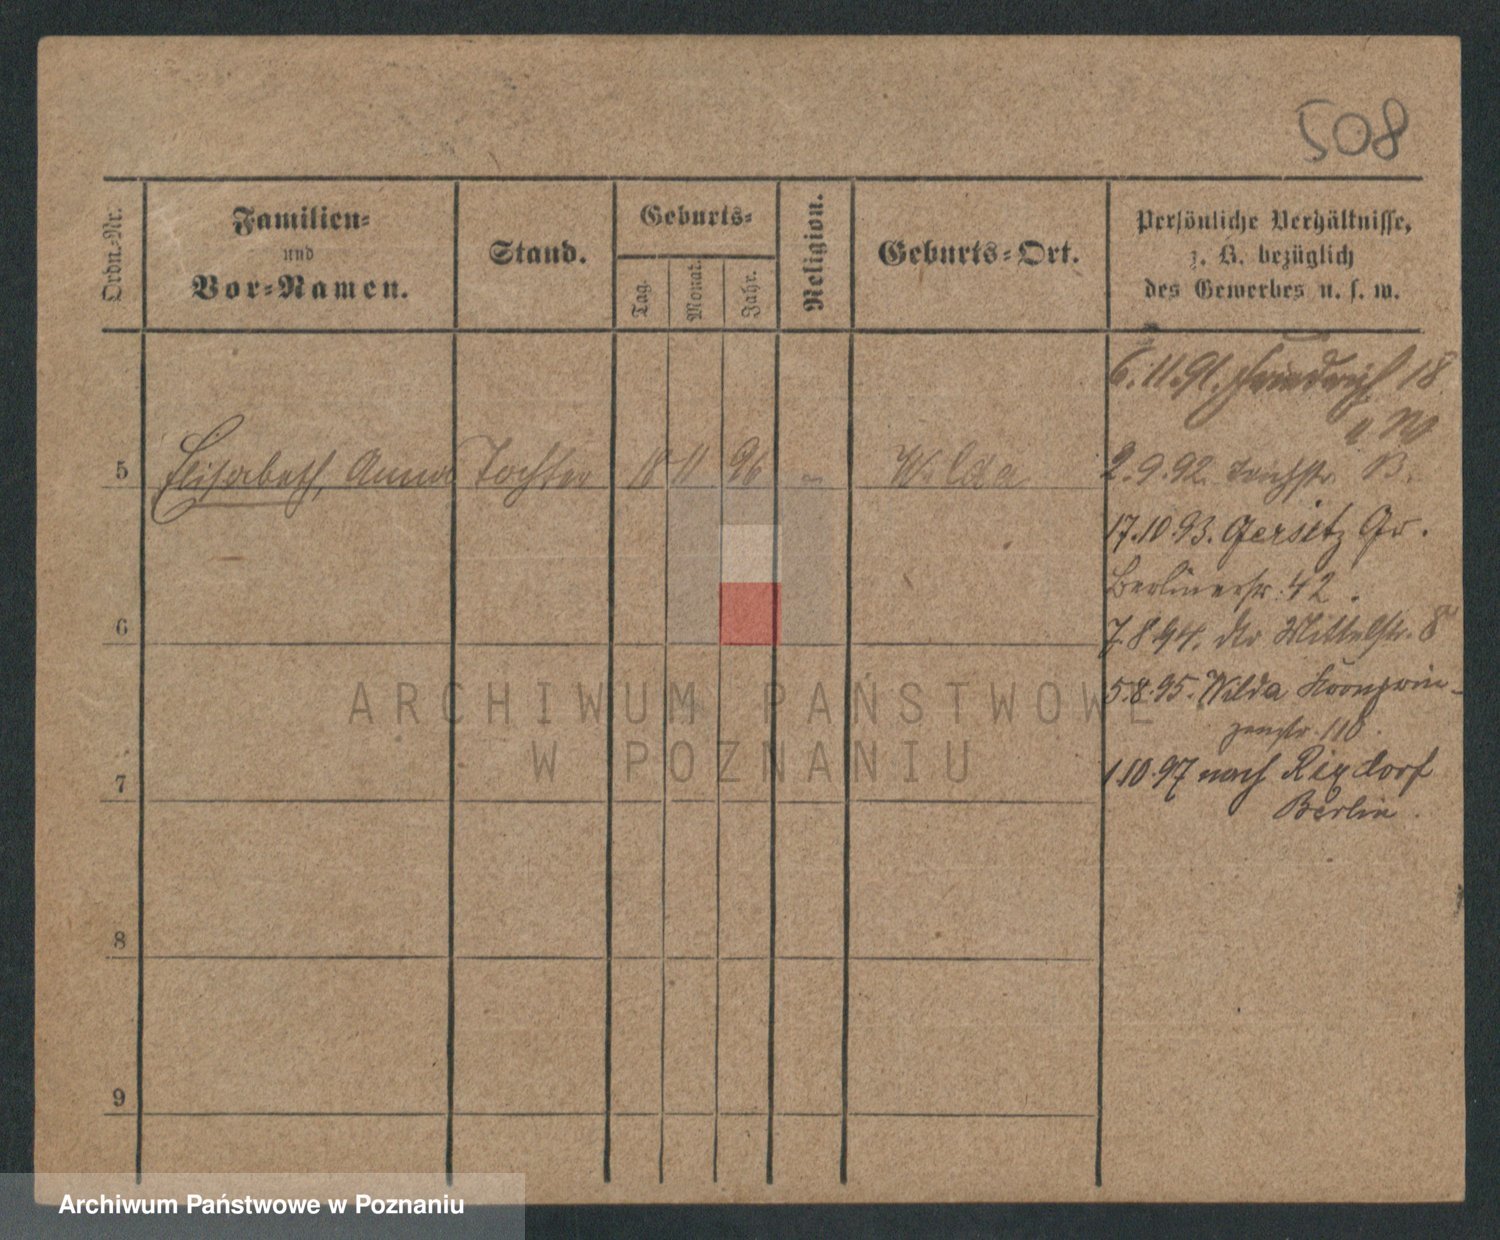 508
Ordn.-Nr.
Familien-
und
Vor-Namen.
Stand.
Geburts-
Tag.
Monat.
Jahr.
Religion.
Geburts-Ort.
Persönliche Verhältnisse,
z. B. bezüglich
des Gewerbes u. s. w.
6.11.91. Friedrich 18
5 Elisabeth, Anna Tochter 18 11 96 Wilda
2.9.92. B.
17.10.93. Gersitz Gr.
Berlinerstr. 42.
6
7.8.94. Mittelstr. 8
5.8.95. Wilda Kronprin-
zenstr. 110.
ARCHIWUM PAŃSTWOWE
W POZNANIU
7
1.10.97 nach Rixdorf
Berlin.
8
9
Archiwum Państwowe w Poznaniu